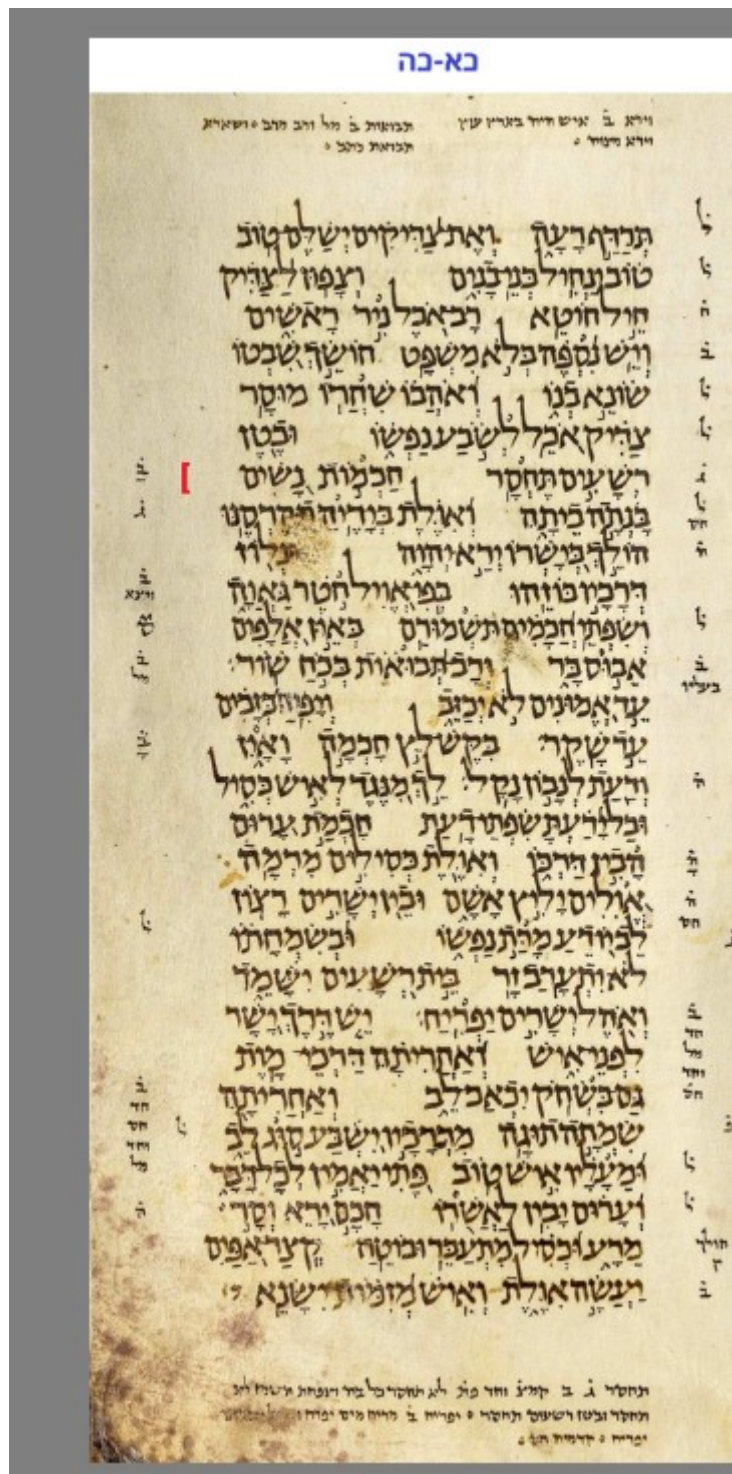 כא-כה
וירא ב איש חיה בארץ עוץ
תבואות ב מל ורב
תרדף רעה ואת צדיקים ישלם טוב
טוב ינחיל בני בנים וצפון לצדיק
חיל חוטא רב אכל ניר ראשים
ויש נספה בלא משפט חושך שבטו
שונא בנו ואהבו שחרו מוסר
צדיק אכל לשבע נפשו ובטן
רשעים תחסר חכמות נשים
בנתה ביתה ואולת בידיה תהרסנו
הולך בישרו ירא יהוה ונלוז
דרכיו בוזהו בפי אויל חטר גאוה
ושפתי חכמים תשמורם באין אלפים
אבוס בר ורב תבואות בכח שור
עד אמונים לא יכזב ויפיח כזבים
עד שקר בקש לץ חכמה ואין
ודעת לנבון נקל לך מנגד לאיש כסיל
ובל ידעת שפתי דעת חכמת ערום
הבין דרכו ואולת כסילים מרמה
אולים יליץ אשם ובין ישרים רצון
לב יודע מרת נפשו ובשמחתו
לא יתערב זר בית רשעים ישמד
ואהל ישרים יפריח יש דרך ישר
לפני איש ואחריתה דרכי מות
גם בשחק יכאב לב ואחריתה
שמחה תוגה מדרכיו ישבע סוג לב
ומעליו איש טוב פתי יאמין לכל דבר
וערום יבין לאשרו חכם ירא וסר
מרע וכסיל מתעבר ובוטח קצר אפים
יעשה אולת ואיש מזמות ישנא